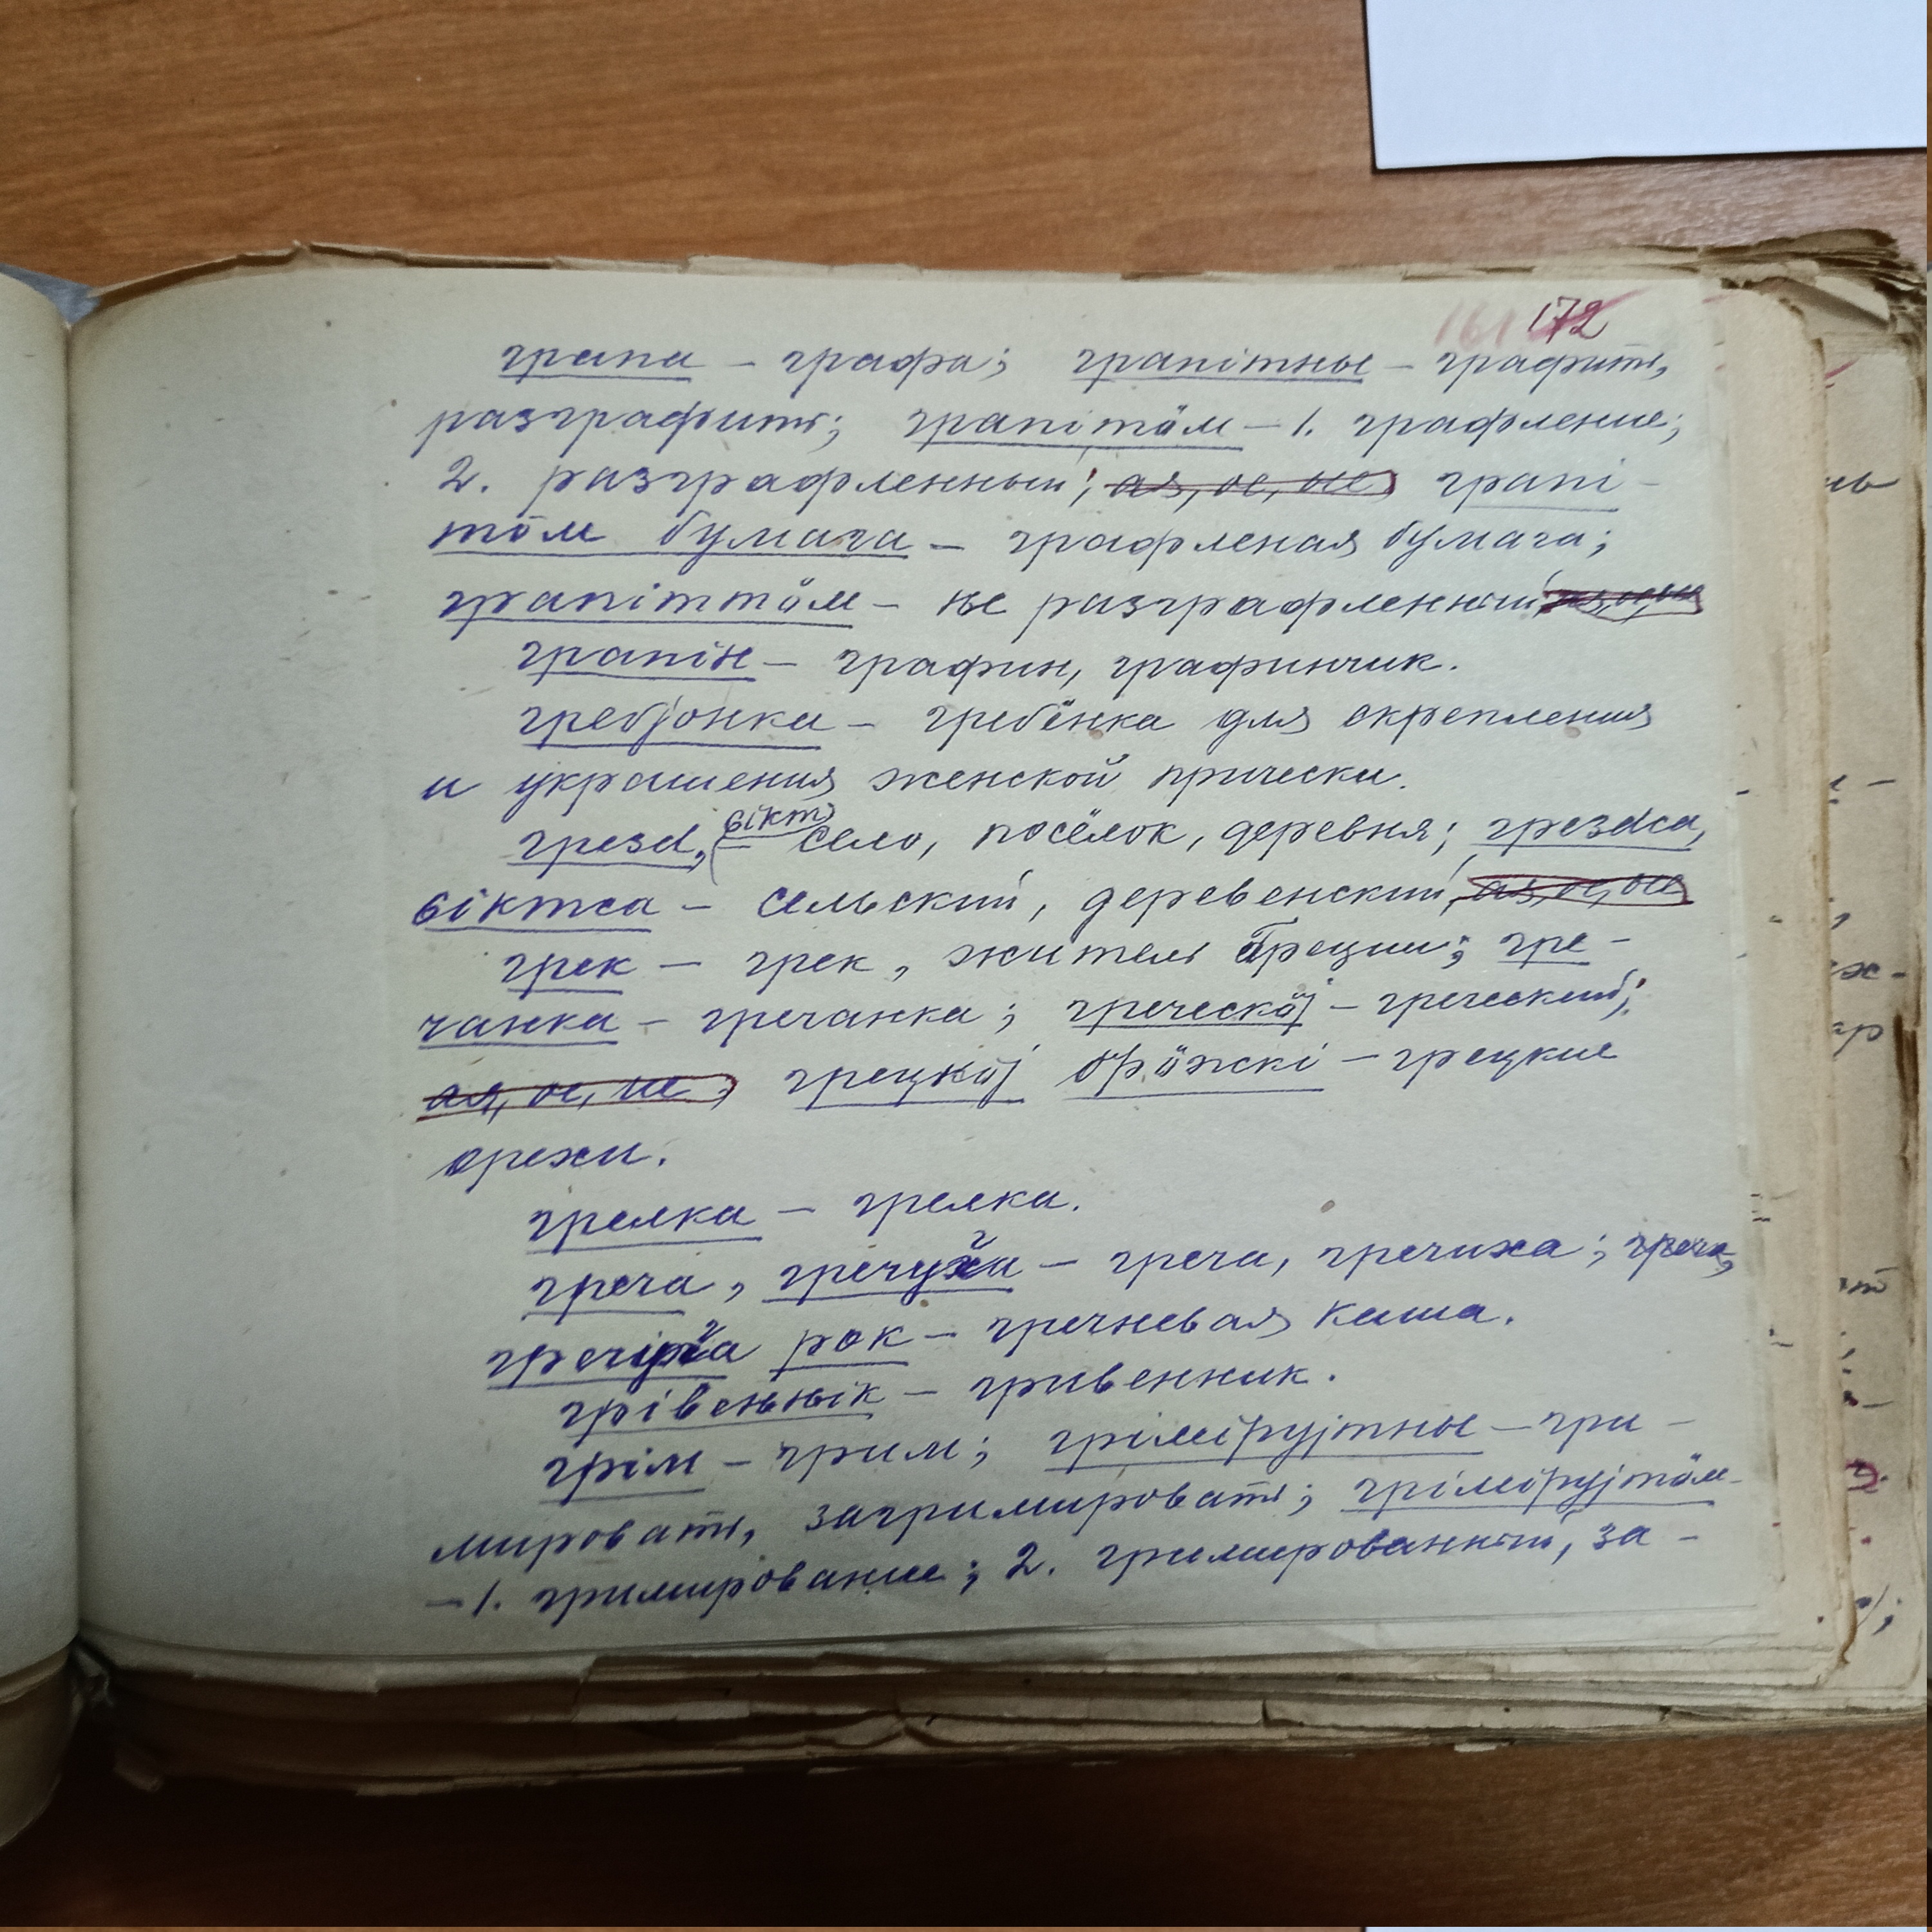 172
грапа – графа; грапітны – графить,
разграфить; грапітӧм – 1. графление;
2. разграфленный; ая, ое, ые; грапі-
тӧм бумага – графленая бумага;
грапіттӧм – не разграфленный, ая, ое, ые
грапін – графин, графинчик.
гребјонка – гребёнка для скрепления
и украшения женской прически.
грезd, сікт – село, посёлок, деревня; грезdса,
сіктса – сельский, деревенский, ая, ое, ие
грек – грек, житель Греции; гре-
чанка – гречанка; греческӧј – греческий;
ая, ое, ие; грецкӧј ӧрӧжкі – грецкие
орехи.
грелка – грелка.
греча, – греча, гречиха; греча,
рок – гречневая каша.
грівеннік – гривенник.
грім – грим; грімірујтны – гри-
мировать, загримировать; грімірујтӧм
– 1. гримирование; 2. гримированный, за-